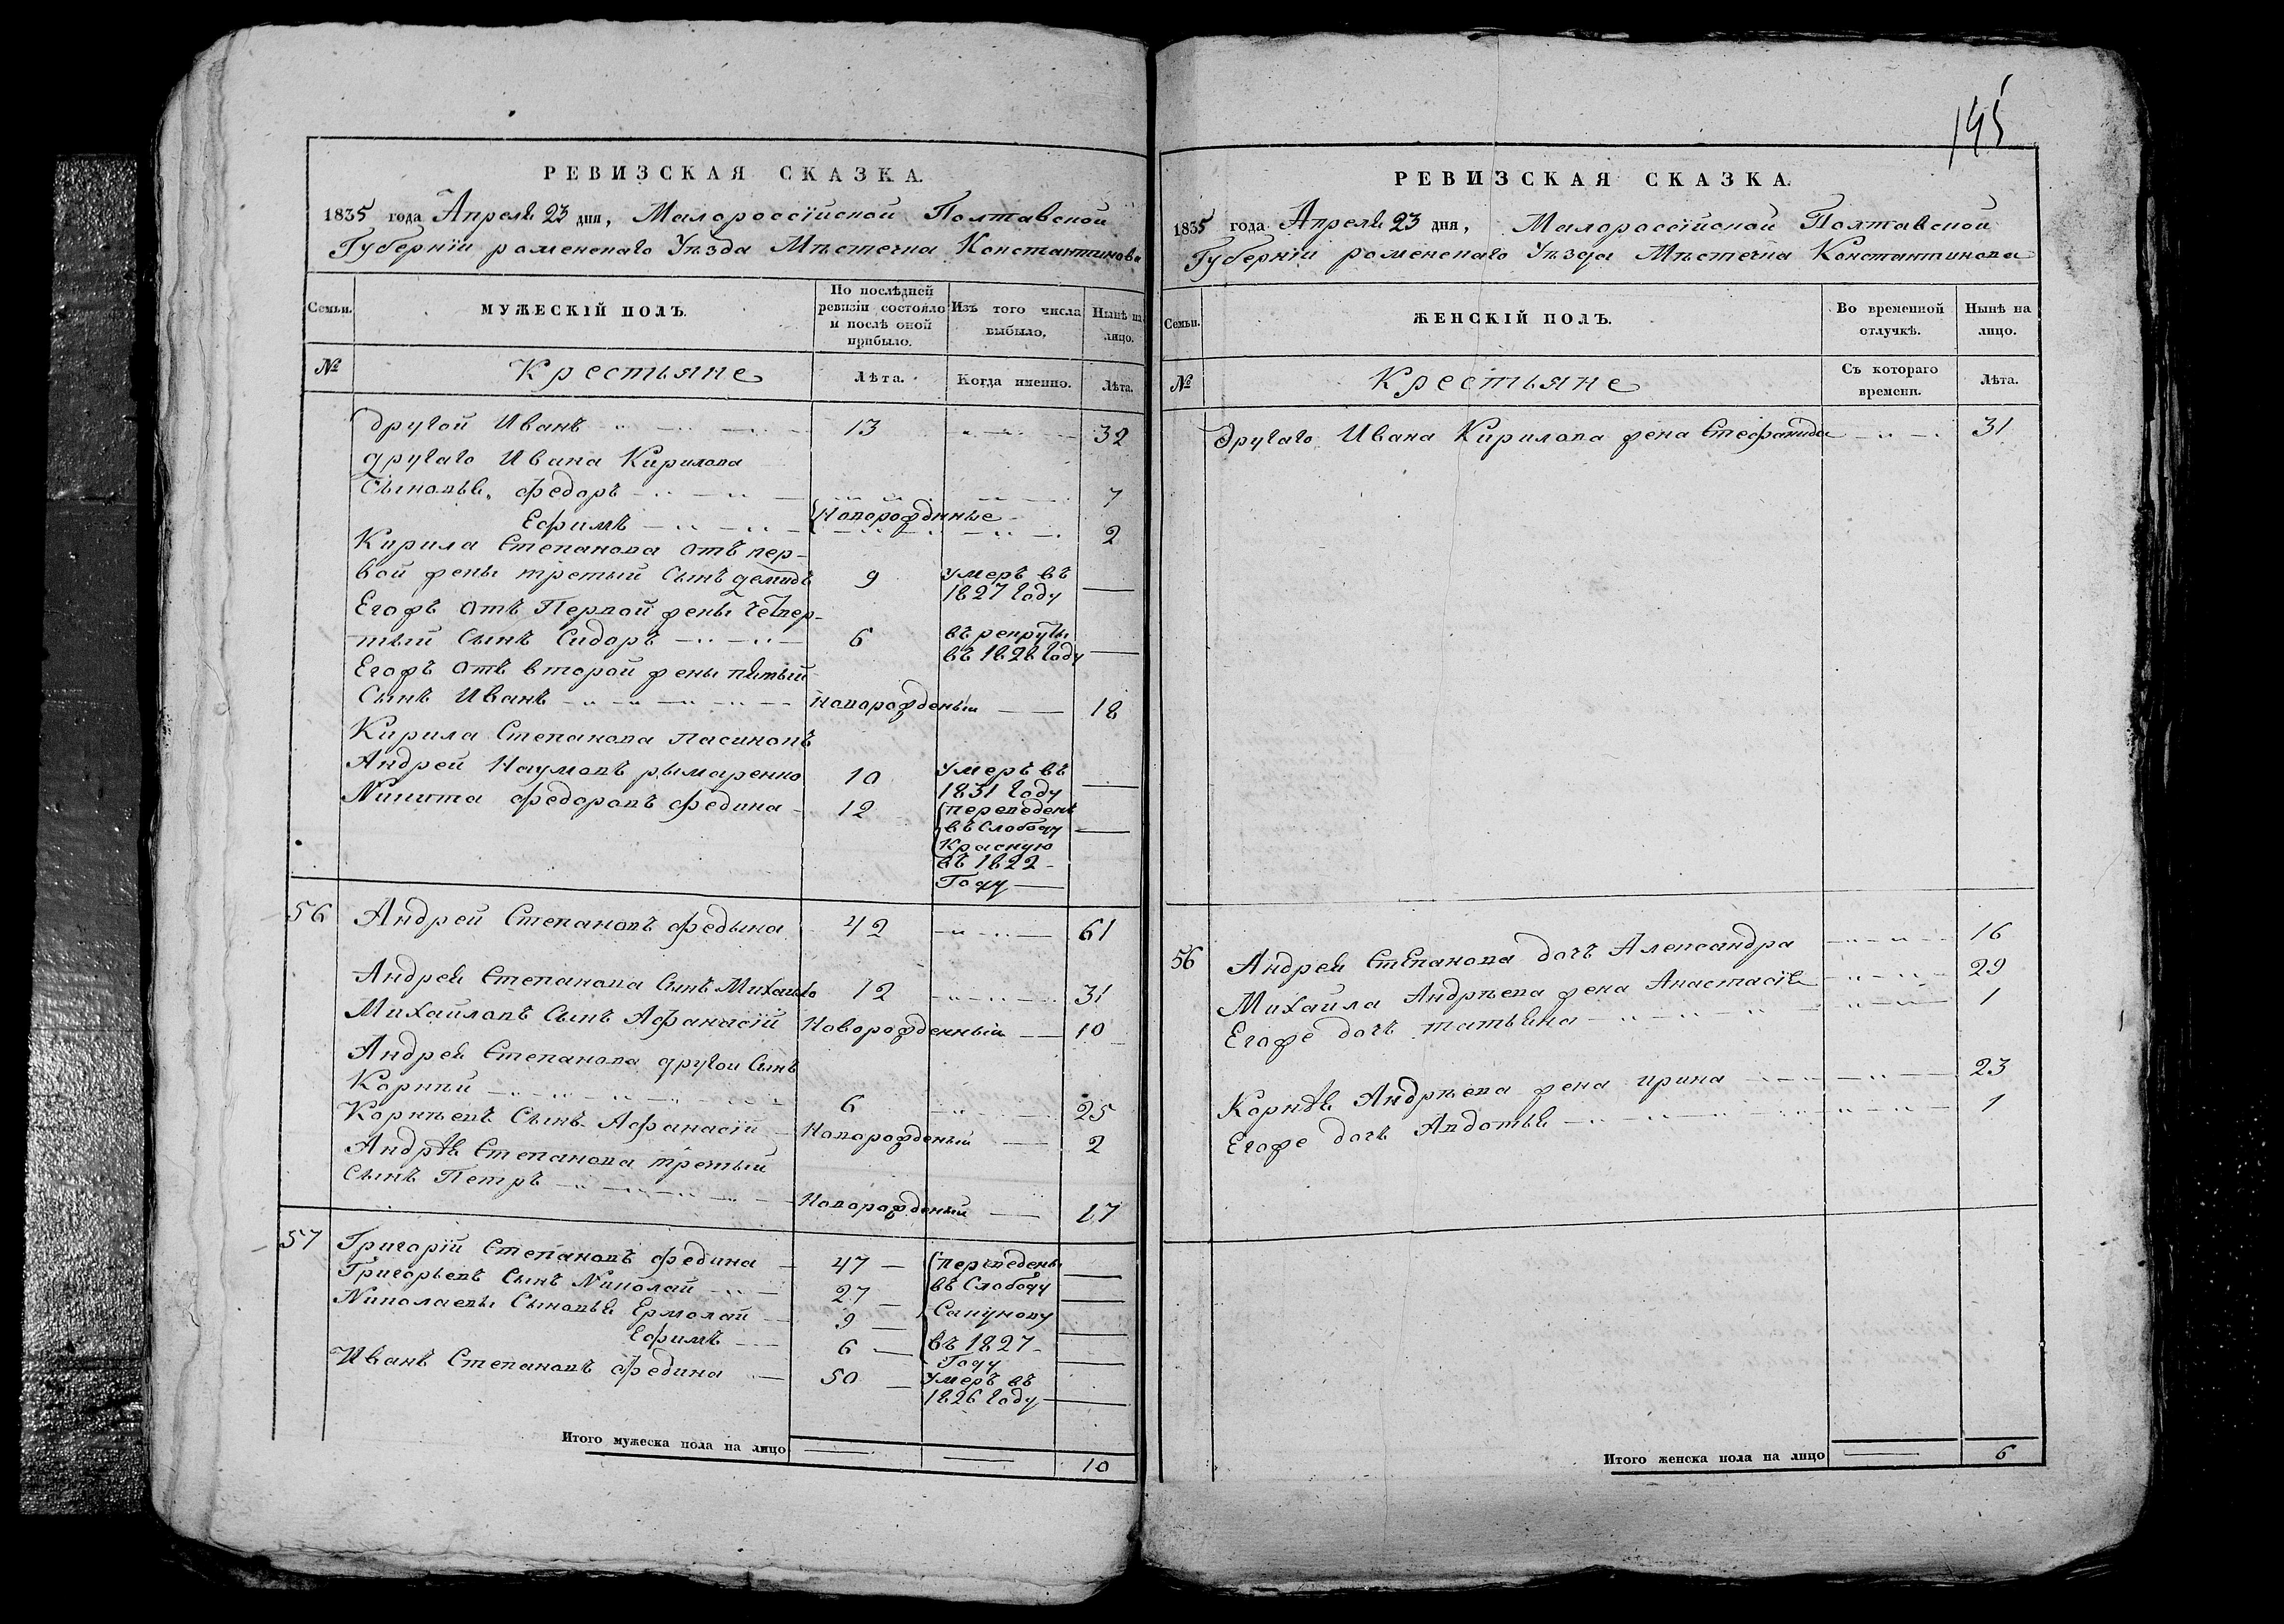 РЕВИЗСКАЯ СКАЗКА.
1835 года Апреля 23 дня, Малороссійской Полтавской
Губерніи роменскаго Уѣзда Мѣстечка Константинова
Семьи.
МУЖЕСКІЙ ПОЛЪ.
По послѣдней ревизіи состояло и послѣ оной прибыло.
Изъ того числа выбыло.
Нынѣ на лицо.
№
Крестьяне
Лѣта.
Когда именно.
Лѣта.
другой Иванъ 13 32
другаго Ивана Кирилова
Сыновья, Федоръ 7
Новорожденные
Ефимъ 2
Кирила Степанова отъ пер-
вой жены третый Сынъ демидъ 9 умеръ въ 1827 году
Егожъ отъ Первой жены четвер-
тый Сынъ Сидоръ 6 въ рекруты въ 1828 году
Егожъ отъ второй жены пятый
Сынъ Иванъ Новорожденый 18
Кирила Степанова пасинокъ
Андрей Наумовъ рымаренко 10 умеръ въ 1831 году
Никита Федоровъ Федина 12 переведенъ
въ Слободу
Красную
въ 1822
Году
56 Андрей Степановъ Федына 42 61
Андрея Степанова Сынъ Михайло 12 31
Михайловъ Сынъ Афанасій Новорожденный 10
Андрея Степанова другой Сынъ
Корній 6 25
Корнѣевъ Сынъ Афанасій Новорожденый 2
Андрѣя Степанова третый
Сынъ Петръ Новорожденый 17
57 Григорій Степановъ Федина 47 переведены
Григорьевъ Сынъ Николай 27 въ Слободу
Николаевы Сыновья Ермолай 9 Сакунову
Ефимъ 6 въ 1827
Году
Иванъ Степановъ Федина 50 умеръ въ
1826 году
Итого мужеска пола на лицо 10
195
РЕВИЗСКАЯ СКАЗКА.
1835 года Апреля 23 дня, Малороссійской Полтавской
Губерніи роменскаго Уѣзда Мѣстечка Константинова
Семьи.
ЖЕНСКІЙ ПОЛЪ.
Во временной отлучкѣ.
Нынѣ на лицо.
№
Крестьяне
Съ котораго времени.
Лѣта.
другаго Ивана Кирилова жена Стефанида 31
56 Андрея Степанова дочъ Александра 16
Михайла Андрѣева жена Анастасія 29
Егоже дочъ татьяна 1
Корнѣя Андрѣева жена ирина 23
Егоже дочъ Авдотья 1
Итого женска пола на лицо 6